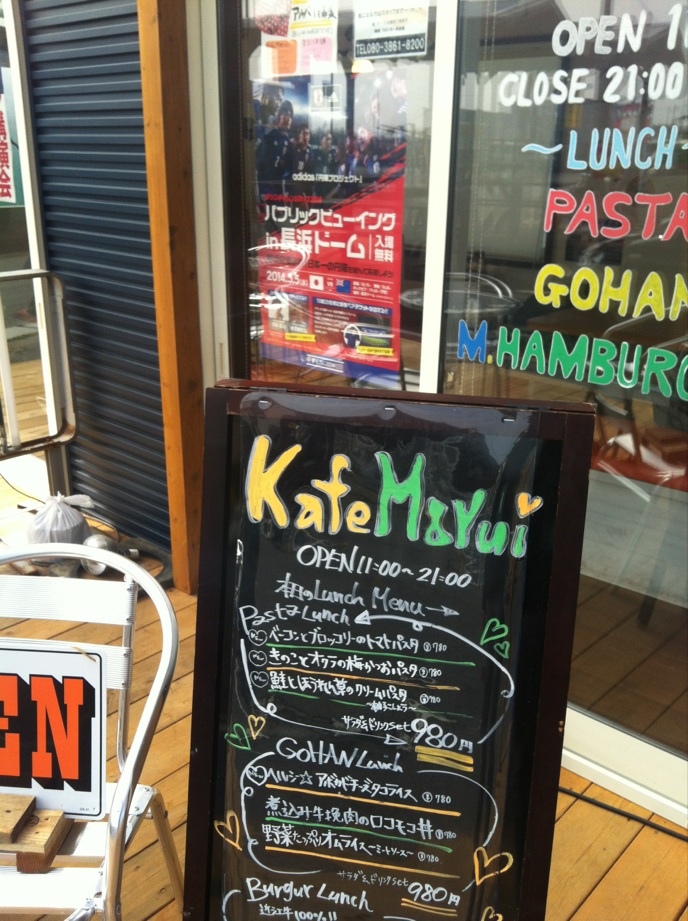 講演会
TEL080-3861-8200
adidas「円陣プロジェクト」
パブリックビューイング
in長浜ドーム 入場無料
2014.3.5
OPEN 1
CLOSE 21:00
～LUNCH～
PASTA
GOHAN
M.HAMBURG
EN
Kafe Mayui
OPEN 11:00～21:00
Lunch Menu→
Pasta Lunch
ベーコンとブロッコリーのトマトパスタ 780
きのことオクラの梅かつおパスタ 780
鮭とほうれん草のクリームパスタ 780
サラダ&ドリンクset 980円
GOHAN Lunch
ヘルシー☆アボカドチーズタコライス 780
煮込み牛挽肉のロコモコ丼 780
野菜たっぷりオムライス～ミートソース～ 780
サラダ&ドリンクset 980円
Burgur Lunch
近江牛100%!!